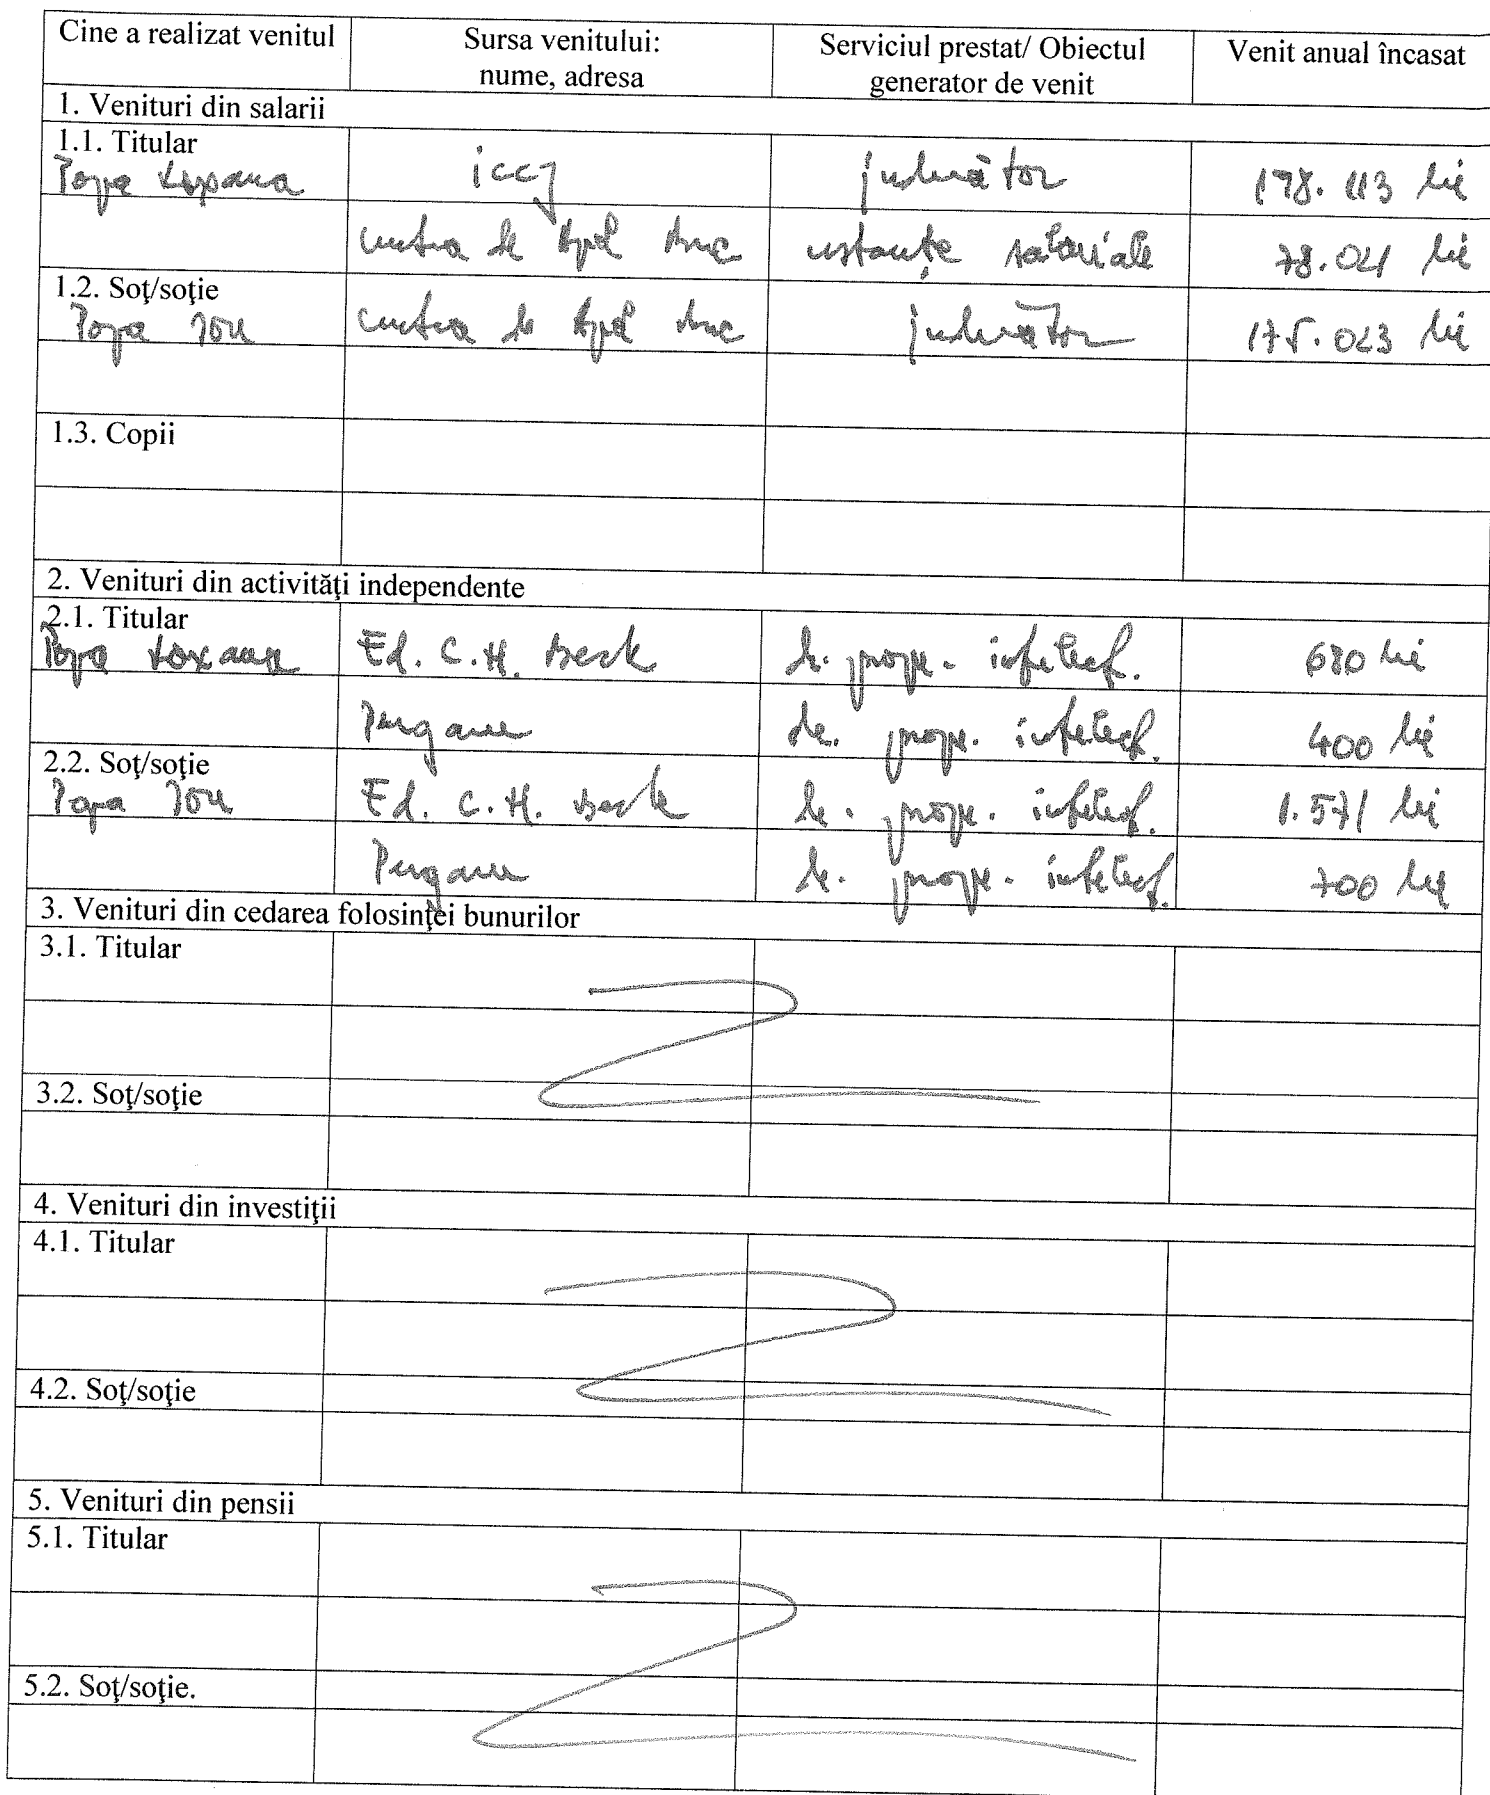 Cine a realizat venitul
Sursa venitului:
nume, adresa
Serviciul prestat/ Obiectul
generator de venit
Venit anual încasat
1. Venituri din salarii
1.1. Titular
Popa Roxana ICCJ judecător 198.113 lei
Curtea de Apel Buc restanțe salariale 78.021 lei
1.2. Soţ/soţie
Popa Ion Curtea de Apel Buc judecător 175.023 lei
1.3. Copii
2. Venituri din activităţi independente
2.1. Titular
Popa Roxana Ed. C.H. Beck dr. propr. intelect. 680 lei
dr. propr. intelect. 400 lei
2.2. Soţ/soţie
Popa Ion Ed. C.H. Beck dr. propr. intelect. 1.571 lei
dr. propr. intelect. 700 lei
3. Venituri din cedarea folosinţei bunurilor
3.1. Titular
3.2. Soţ/soţie
4. Venituri din investiţii
4.1. Titular
4.2. Soţ/soţie
5. Venituri din pensii
5.1. Titular
5.2. Soţ/soţie.